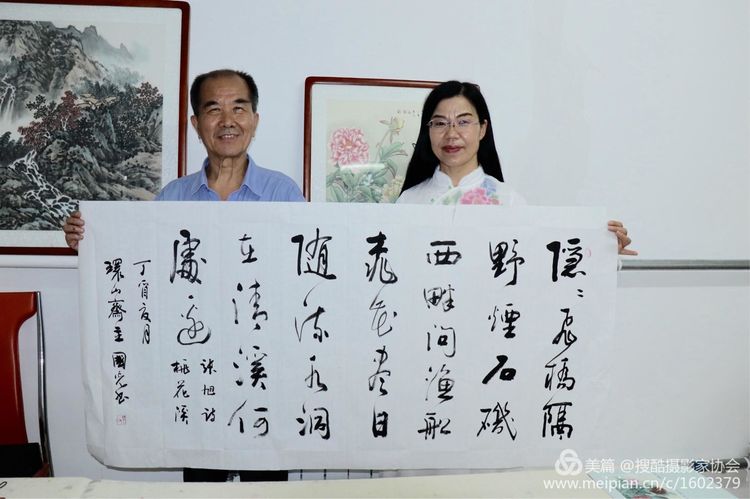 隐々飛橋隔
野煙石磯
西畔问渔船
桃花尽日
随流水洞
在清溪何
處邊
张旭诗
桃花溪
丁酉夏月
環山齋主國光书
美篇 @搜酷摄影家协会
www.meipian.cn/c/1602379